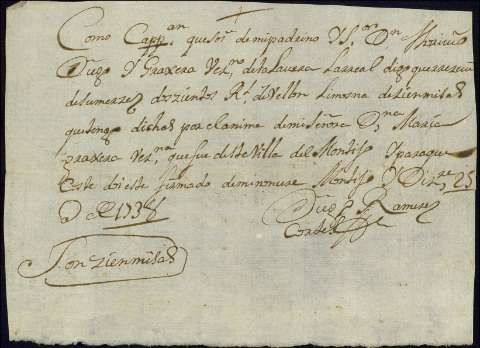 Como Capp.an que soi de mi padrino Y S.or Dn
Diego Y Graxera Vez.no de la Puebla Larreal digo que
de su merzed doszientos R.s de Vellon limosna de zien misas
que tengo dichas por el anima de mi señora D.na Maria
Graxera Vez.na que fue de esta Villa del Montijo Y para que
Conste doi este firmado de mi nombre Montijo Y Diz.re 25
D 1738
Diego Ramirez
Son zien misas